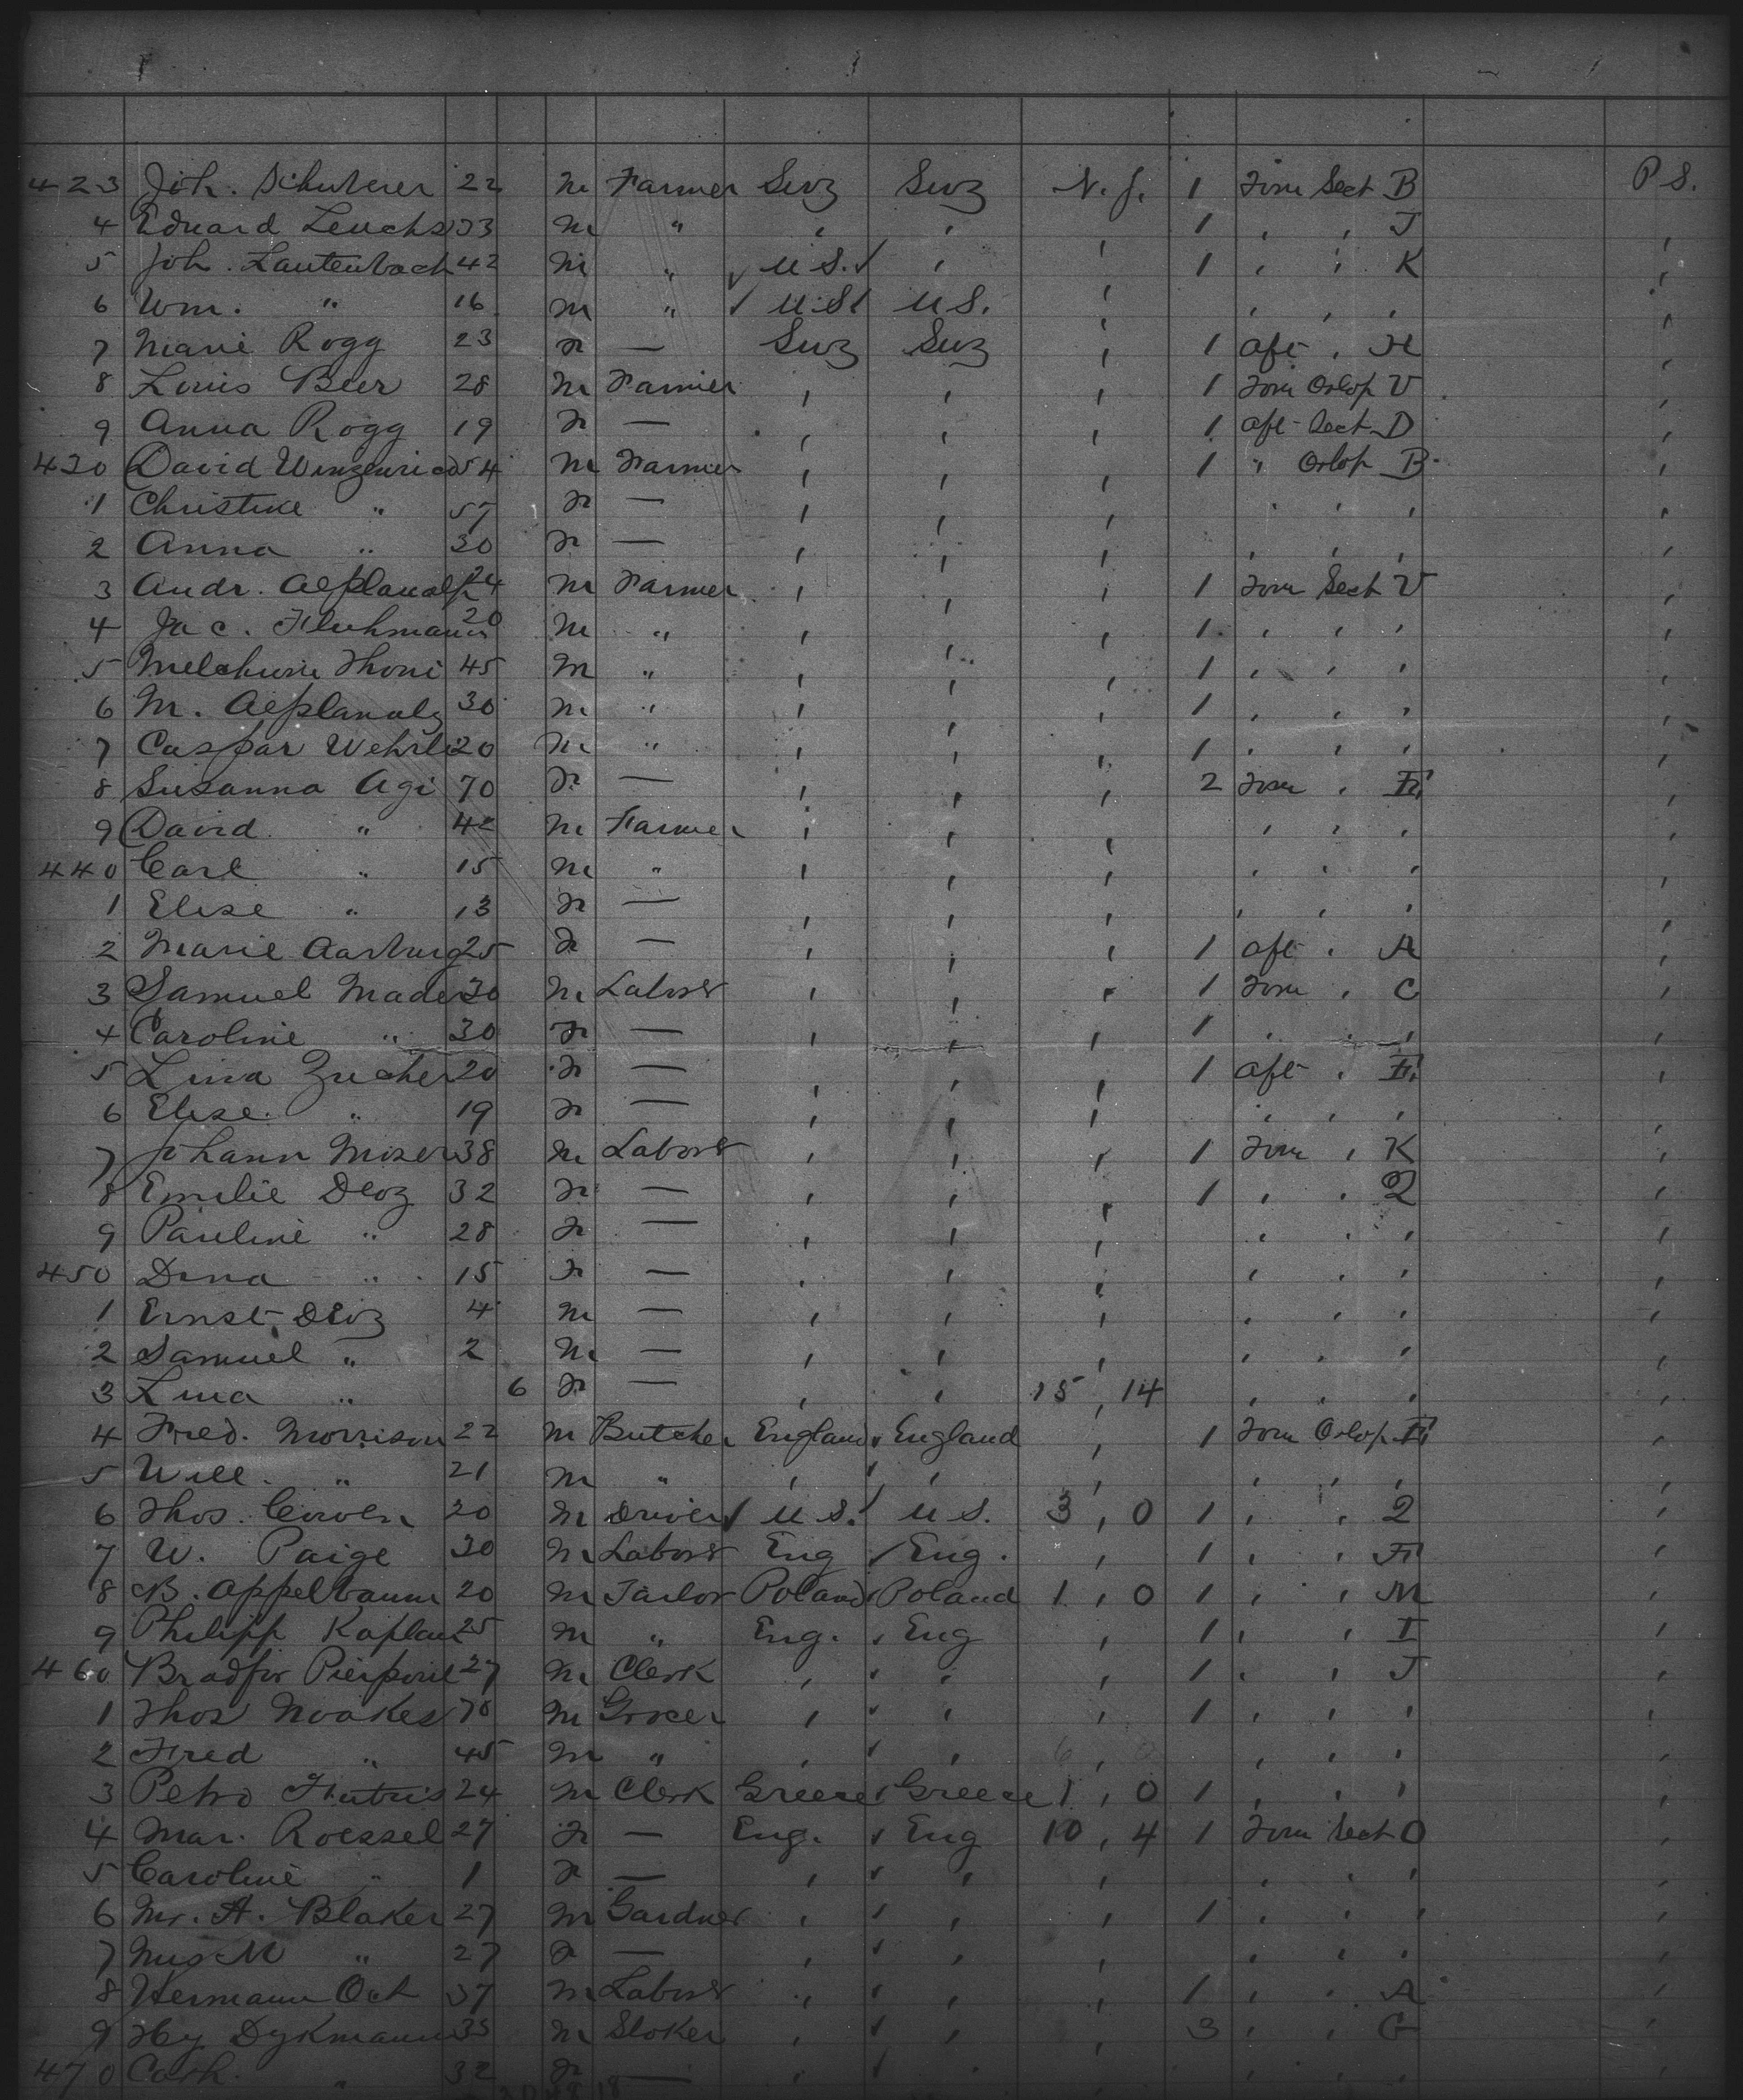 423 Joh. Schuterer 22 M Farmer Swz Swz N. J. 1 Forw Sect B P S.
4 Eduard Leuchs 33 M " , , , 1 , , J ,
5 Joh. Lautenbach 42 M " ✓ U S. ✓ , , 1 , , K ,
6 Wm. " 16 M " ✓ U.S ✓ U S. , , , , ,
7 Marie Rogg 23 F — Swz Swz , 1 aft , H ,
8 Louis Beer 28 M Farmer , , , 1 Forw Orlop V ,
9 Anna Rogg 19 F — , , , 1 aft Sect D ,
430 David Winzenried 54 M Farmer , , , 1 " Orlop B ,
1 Christine " 57 F — , , , , , , ,
2 Anna " 30 F — , , , , , , ,
3 Andr. Aeplanalp 24 M Farmer , , , 1 Forw Sect V ,
4 Jac. Fluhmann 20 M " , , , 1 , , , ,
5 Melchior Thoni 45 M " , , , 1 , , , ,
6 M. Aeplanalp 30 M " , , , 1 , , , ,
7 Caspar Wehrli 20 M " , , , 1 , , , ,
8 Susanna Agi 70 F — , , , 2 Forw , E ,
9 David " 42 M Farmer , , , , , , ,
440 Carl " 15 M " , , , , , , ,
1 Elise " 13 F — , , , , , , ,
2 Marie Aarburg 25 F — , , , 1 aft , A ,
3 Samuel Mader 30 M Labore , , , 1 Forw , C ,
4 Caroline " 30 F — , , , 1 , , , ,
5 Lina Zucher 20 F — , , , 1 aft , E ,
6 Elise " 19 F — , , , , , , ,
7 Johann Moser 38 M Labore , , , 1 Forw , K ,
8 Emilie Droz 32 F — , , , 1 , , Q ,
9 Pauline " 28 F — , , , , , , ,
450 Dina " 15 F — , , , , , , ,
1 Ernst Droz 4 M — , , , , , , ,
2 Samuel " 2 M — , , , , , , ,
3 Lina " 6 F — , , 15 , 14 , , , ,
4 Fred. Morrison 22 M Butcher England ✓ England , 1 Forw Orlop E ,
5 Will. " 21 M " , ✓ , , , , , ,
6 Thos. 20 M Driver ✓ U S. ✓ U S. 3 , 0 1 , , Q ,
7 W. Paige 30 M Labore Eng ✓ Eng. , 1 , , F ,
8 B. Appelbaum 20 M Tailor Poland ✓ Poland 1 , 0 1 , , M ,
9 Philipp Kaplan 25 M " Eng. ✓ Eng , 1 , , I ,
460 Bradfor Pierpont 27 M Clerk , ✓ , , 1 , , J ,
1 Thos Noakes 70 M Grocer , ✓ , , 1 , , , ,
2 Fred " 45 M " , ✓ , 6 , 0 , , , ,
3 Petro 24 M Clerk Greece ✓ Greece 1 , 0 1 , , , ,
4 Mar. Roessel 27 F — Eng. ✓ Eng 10 , 4 1 Forw Sect O ,
5 Caroline " 1 F — , ✓ , , , , , ,
6 Mr. A. Blaker 27 M Gardner , ✓ , , 1 , , , ,
7 Mrs M " 27 F — , ✓ , , , , , ,
8 Hermann Ock 37 M Labore , ✓ , , 1 , , A ,
9 Hy Dykmann 35 M Stoker , ✓ , , 3 , , G ,
470 Cath. " 32 F — , ✓ , , , , , ,